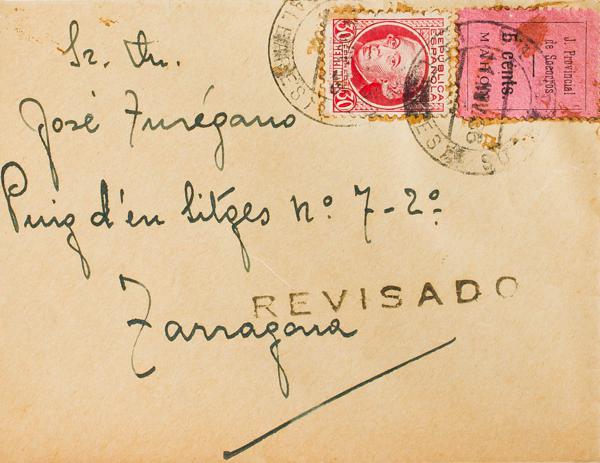 Sr. Dn.
José Furégano
Puig d'en Sitges nº 7-2º
Tarragona
REVISADO
30
30
REPÚBLICA
ESPAÑOLA
J. Provincial
de Socorros
5 cents.